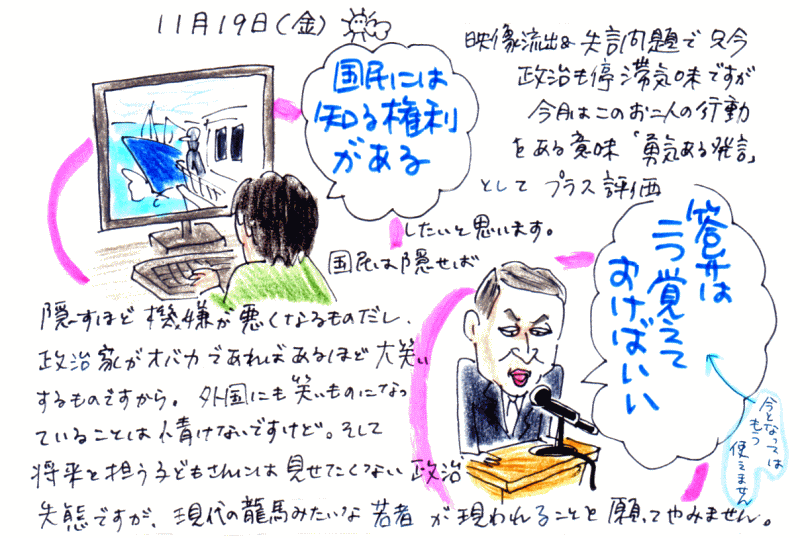 11月19日(金)
国民には
知る権利
がある
映像流出&失言問題で只今
政治も停滞気味ですが
今月はこのお二人の行動
をある意味「勇気ある発言」
として プラス評価
したいと思います。
国民は隠せば
隠すほど機嫌が悪くなるものだし、
政治家がオバカであればあるほど大笑い
するものですから。外国にも笑いものになっ
ていることは情けないですけど。そして
将来を担う子どもさんには見せたくない政治
失態ですが、現代の龍馬みたいな若者が現われることを願ってやみません。
答弁は
二つ覚えて
おけばいい
今となっては
もう
使えません